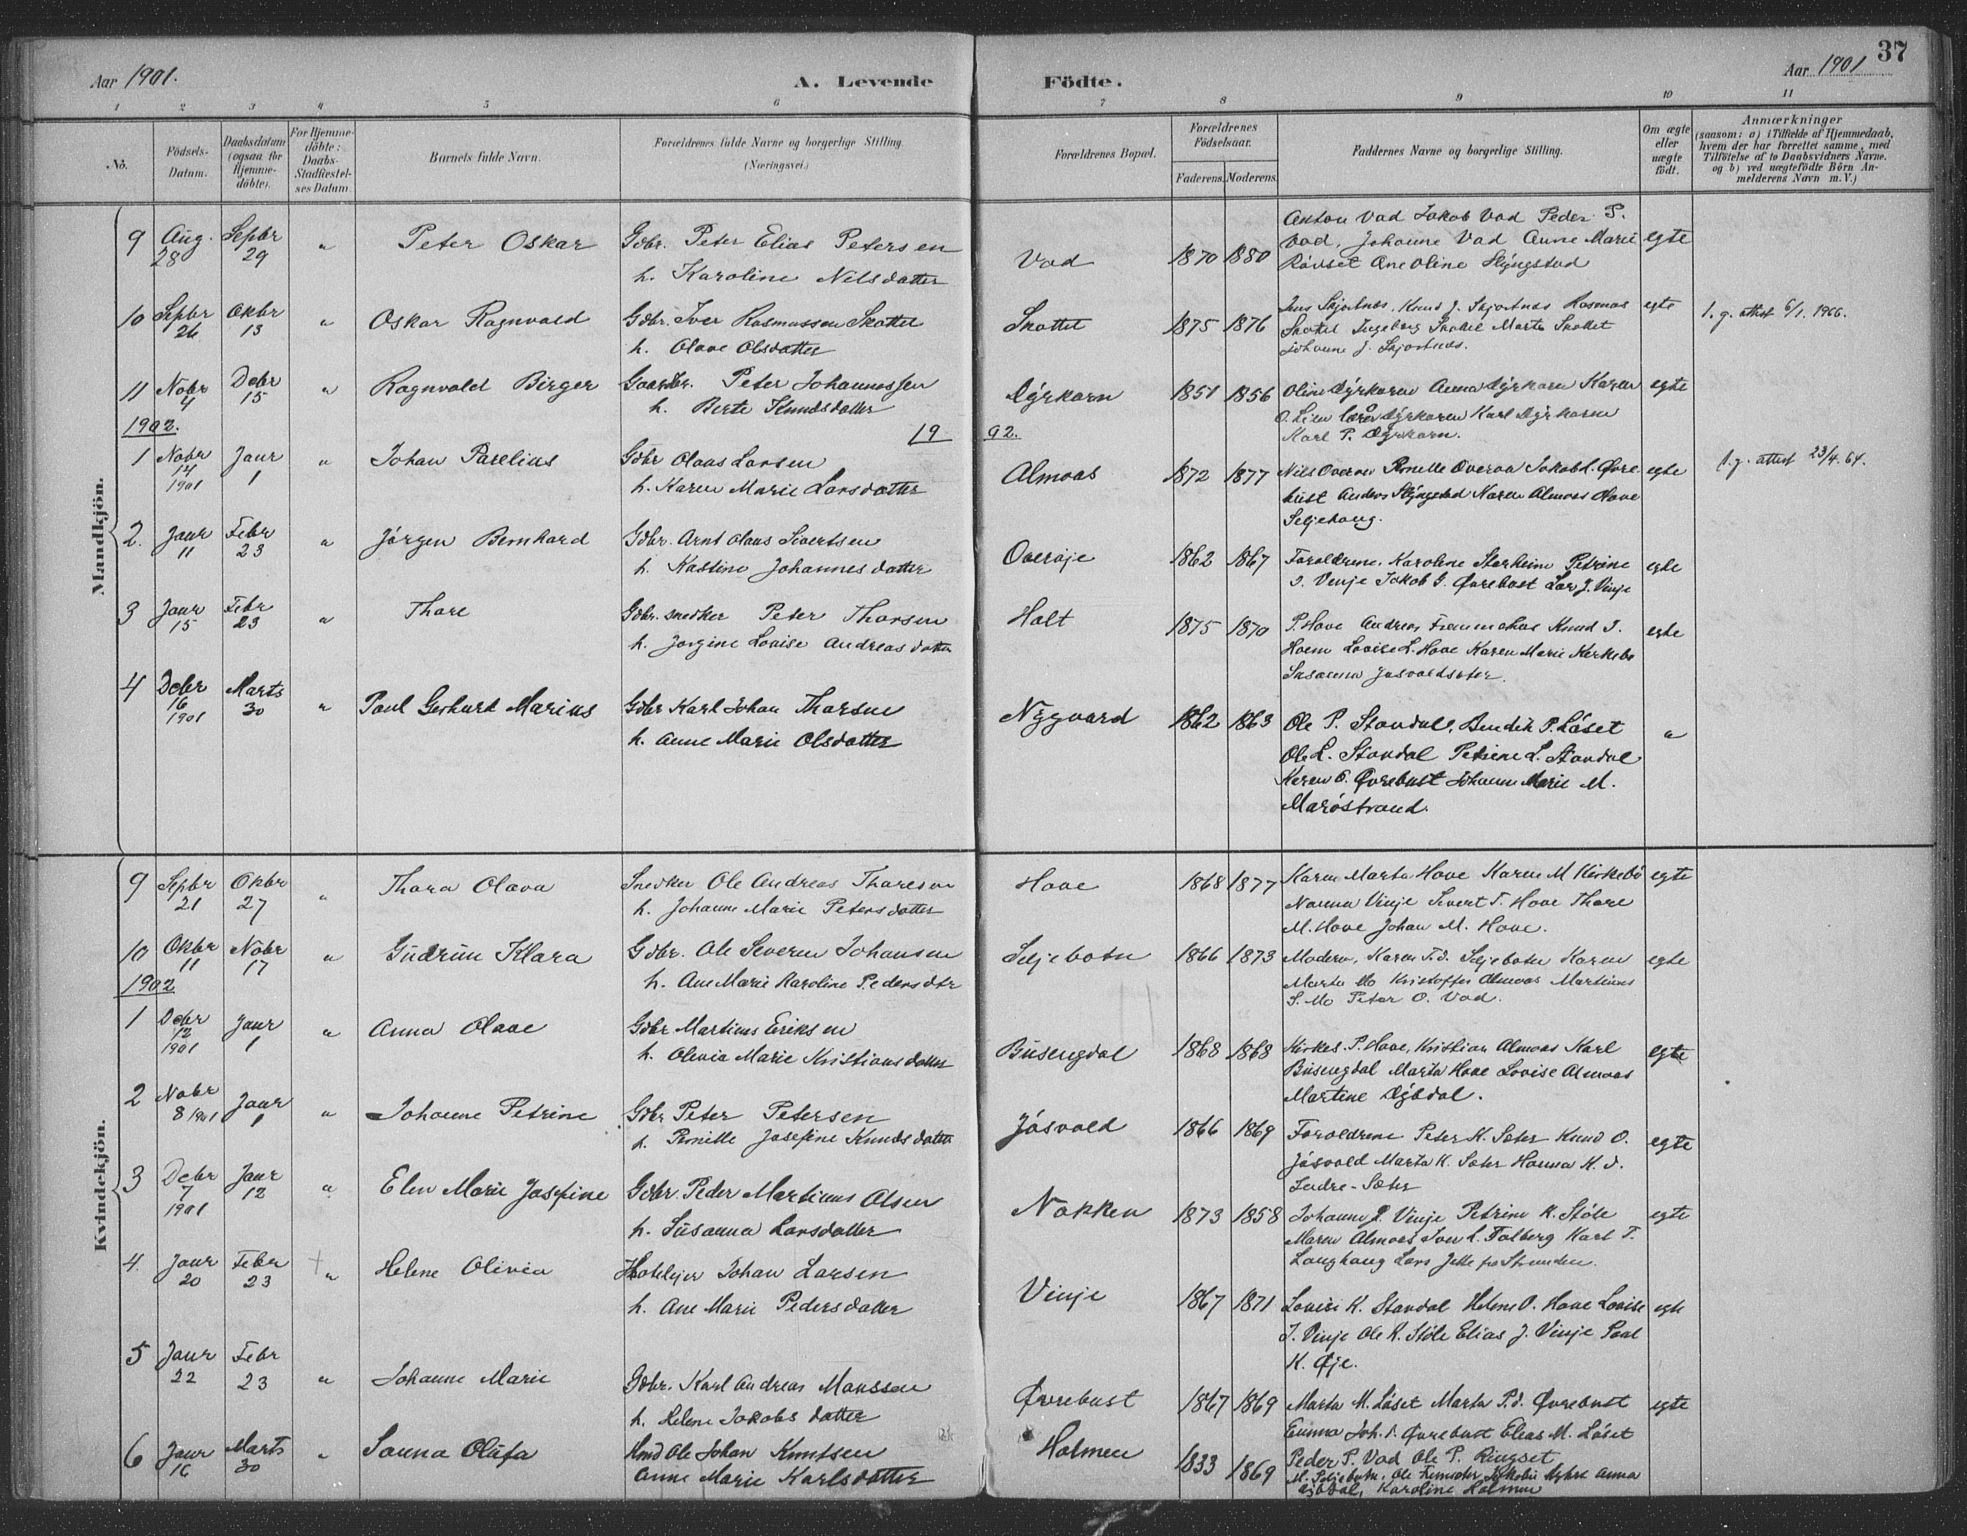 Aar 1901.
A. Levende Födte.
Aar 1901
37
1 2 3 4 5 6 7 8 9 10 11
No.
Födsels-Datum.
Daabsdatum (ogsaa for Hjemmedöbte).
For Hjemmedöbte: Daabs-Stadfæstelses Datum
Barnets fulde Navn.
Forældrenes fulde Navne og borgerlige Stilling.
(Næringsvei.)
Forældrenes Bopæl.
Forældrenes Födselsaar.
Faderens. Moderens.
Faddernes Navne og borgerlige Stilling.
Om ægte eller uægte födt.
Anmærkninger
(saasom: a) i Tilfælde af Hjemmedaab, hvem der har forrettet samme, med Tilföielse af to Daabsvidners Navne. og b) ved uægtefödte Börn Anmelderens Navn m. V.)
Mandkjön.
9 Aug. 28 Septbr 29 " Peter Oskar Gdbr. Peter Elias Petersen
h. Karoline Nilsdatter
Vad 1870 1880 Anton Vad Jakob Vad Peder P.
Vad, Johanne Vad Anne Marie
Røvset Ane Oline Slyngstad
egte
10 Septbr 26 Oktbr 13 " Oskar Ragnvald Gdbr. Iver Rasmussen Skottet
h. Olave Olsdatter
Skottet 1875 1876 Jens Skjortnes, Knud J. Skjortnes Rasmus
Skottet Ingeborg Skottet Marta Skottet
Johanne J. Skjortnes.
egte 1. g. attest 6/1. 1966.
11 Nobr 4 Debr 15 " Ragnvald Birger Gaardbr. Peter Johannessen
h. Berte Knudsdatter
Dyrkorn 1851 1856 Oline Dyrkoren Anna Dyrkorn Karen
O. Lien Dyrkoren Karl Dyrkoren
Karl P. Dyrkorn.
egte
1902.
19 92.
1 Nobr 14 1901 Janr 1 " Johan Parelius Gdbr Olaus Larsen
h. Karen Marie Larsdatter
Almaas 1872 1877 Nils Overaa Pernille Overaa Jakob L. Øvrebust Anders Slyngstad Karen Almaas Hove
Seljehaug.
egte 1. g. attest 23/4. 64.
2. Janr 11 Febr 23 " Jørgen Bernhard Gdbr. Arnt Olaus Sivertsen
h. Kastine Johannesdatter
Overøje 1862 1867 Forældrene, Karoline Storheim Petrine
J. Vinje Jakob G. Øvrebust Lars J. Vinje
egte
3 Janr 15 Febr 23 " Thore Gdbr. snedker Peter Thorsen
h. Jørgine Lovise Andreasdatter
Holt 1875 1870 P. Hove Andreas Knud J.
Hoem Lovise L. Hove Karen Marie Kirkebø
Susanna Jøsvoldsæter.
egte
4 Debr 16 1901 Marts 30 " Paul Gerhard Marius Gdbr Karl Johan Thorsen
h. Anne Marie Olsdatter
Nygaard 1862 1863 Ole P. Standal, Bendik P. Løset
Ole L. Standal Petrine L. Standal
Karen O. Øvrebust Johanne Marie M.
Marøstrand.
"
Kvindekjön.
9 Septbr 21 Oktbr 27 " Thora Olava Snedker Ole Andreas Thoresen
h. Johanne Marie Petersdatter
Hove 1868 1877 Karen Marta Hove Karen M Kirkebø
Nanna Vinje Sivert T. Hove Thore
M. Hove Johan M. Hove.
egte
10 Oktbr 11 Nobr 17 " Gudrun Klara Gdbr. Ole Severin Johansen
h. Ane Marie Karoline Pedersdtr
Seljebotn 1866 1873 Modern, Karen T.d. Seljebotn Karen
Marta Mo Kristoffer Almaas Martinus
S. Mo Peter O. Vad.
egte
1902
1 Debr 12 1901 Janr 1 " Anna Olave Gdbr Martinus Eriksen
h. Olivia Marie Kristiansdatter
Busengdal 1868 1868 Kirkes. P. Hove, Kristian Almaas Karl
Busengdal Marta Hove Lovise Almaas
Martine Døvdal.
egte
2 Nobr 8 1901 Janr 1 " Johanne Petrine Gdbr Peter Petersen
h. Pernille Josefine Knudsdatter
Jøsvold 1866 1869 Forældrene Peter K. Sæter Knud O.
Jøsvold Marta K. Sæter Hanna K. d.
Indre-Sæter
egte
3 Debr 7 1901 Janr 12 " Elen Marie Josefine Gdbr. Peder Martinus Olsen
h. Susanna Larsdatter
Nakken 1873 1858 Johanne P. Vinje Petrine K. Støle
Maren Almaas Iver L. Folberg Karl T.
Langhaug Lars Jelle fra Stranden.
egte
4. Janr 20 Febr 23 + " Helene Olivia Hotelejer Johan Larsen
h. Ane Marie Pedersdatter
Vinje 1867 1871 Lovise K. Standal Helene O. Hove Lovise
J. Vinje Ole K. Støle Elias J. Vinje Paal
K. Øje.
egte
5 Janr 22 Febr 23 " Johanne Marie Gdbr. Karl Andreas Monssen
h. Helene Jakobsdatter
Øvrebust 1867 1869 Marta M. Løset Marta P.d. Øvrebust
Emma Joh. d. Øvrebust Elias M. Løset
egte
6 Janr 16 Marts 30 " Sanna Olufa Hmd Ole Johan Knutsen
Anne Marie Karlsdatter
Holmen 1833 1869 Peder P. Vad Ole P. Ringset
M. Seljebotn. Ole Jakobie Anna
Karoline Holmen